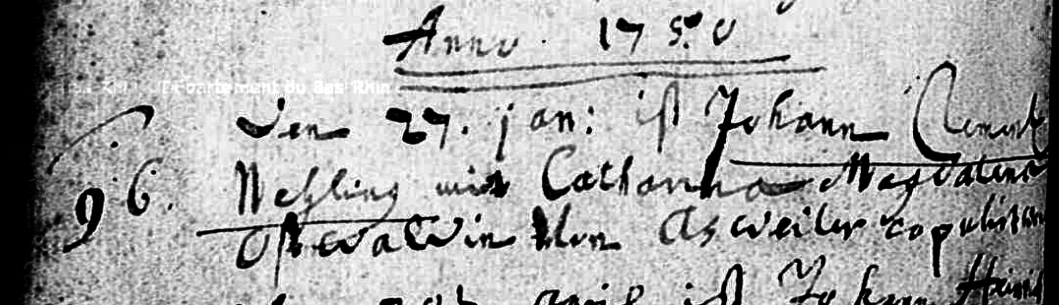 Anno 1750
Département du Bas Rhin
Den 27. jan: ist Johann Clement
96. Weßling mit Catharina Magdalena
Oswaldin von Asweiler copulirt
ist Johann